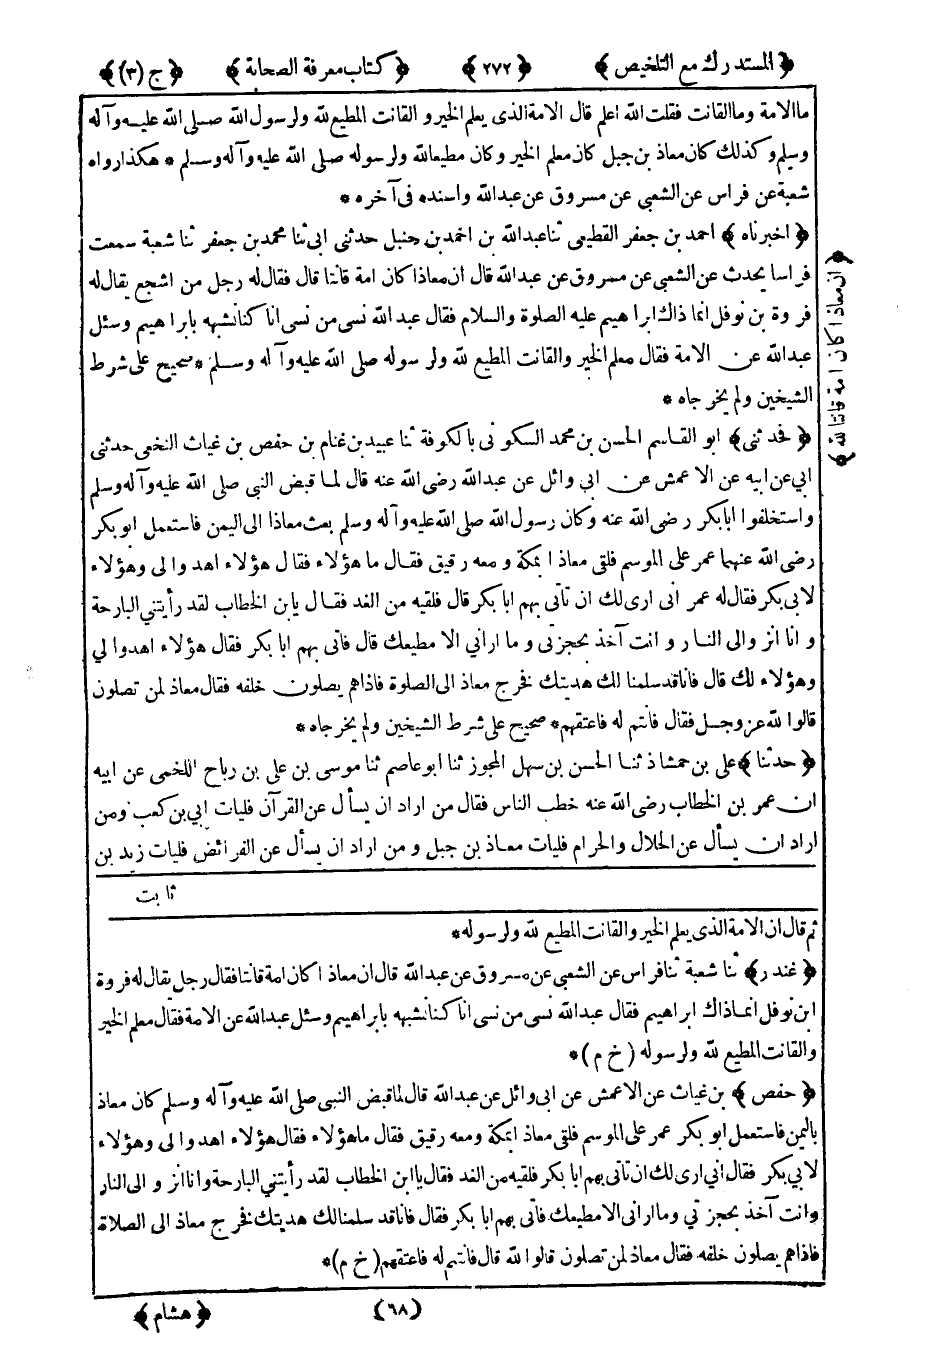 ﴿المستدرك مع التلخيص﴾ ﴿٢٧٢﴾ ﴿كتاب معرفة الصحابة﴾ ﴿ج (٣)﴾
ما الامة وما القانت فقلت الله اعلم قال الامة الذى يعلم الخير و القانت المطيع لله ولرسول الله صلى الله عليه وآله
وسلم وكذلك كان معاذ بن جبل كان معلم الخير وكان مطيعا لله ولرسوله صلى الله عليه وآله وسلم * هكذا رواه
شعبة عن فراس عن الشعبي عن مسروق عن عبدالله واسنده فى آخره *
﴿اخبرناه﴾ احمد بن جعفر القطيعى ثنا عبدالله بن احمد بن حنبل حدثنى ابى ثنا محمد بن جعفر ثنا شعبة سمعت
فراسا يحدث عن الشعبي عن مسروق عن عبدالله قال ان معاذا كان امة قانتا قال فقال له رجل من اشجع يقال له
فروة بن نوفل انما ذاك ابراهيم عليه الصلوة والسلام فقال عبدالله نسى من نسى انا كنا نشبهه بابراهيم وسئل
عبدالله عن الامة فقال معلم الخير والقانت المطيع لله ولرسوله صلى الله عليه وآله وسلم * صحيح على شرط
الشيخين ولم يخرجاه *
﴿فحدثنى﴾ ابو القاسم الحسن بن محمد السكونى بالكوفة ثنا عبيد بن غنام بن حفص بن غياث النخعى حدثنى
ابي عن ابيه عن الاعمش عن ابي وائل عن عبدالله رضى الله عنه قال لما قبض النبى صلى الله عليه وآله وسلم
واستخلفوا ابابكر رضى الله عنه وكان رسول الله صلى الله عليه وآله وسلم بعث معاذا الى اليمن فاستعمل ابوبكر
رضى الله عنهما عمر على الموسم فلقى معاذا بمكة و معه رقيق فقال ما هؤلاء فقال هؤلاء اهدوا لى وهؤلاء
لابى بكر فقال له عمر انى ارى لك ان تاتى بهم ابا بكر قال فلقيه من الغد فقال يا بن الخطاب لقد رأيتنى البارحة
و انا انزو الى النار و انت آخذ بحجزتى و ما اراني الا مطيعك قال فاتى بهم ابا بكر فقال هؤلاء اهدوا لي
وهؤلاء لك قال فانا قد سلمنا لك هديتك فخرج معاذ الى الصلوة فاذا هم يصلون خلفه فقال معاذ لمن تصلون
قالوا لله عز وجل فقال فانتم له فاعتقهم * صحيح على شرط الشيخين ولم يخرجاه *
﴿حدثنا﴾ على بن حمشاذ ثنا الحسن بن سهل المجوز ثنا ابو عاصم ثنا موسى بن على بن رباح اللخمى عن ابيه
ان عمر بن الخطاب رضى الله عنه خطب الناس فقال من اراد ان يسأل عن القرآن فليات ابي بن كعب ومن
اراد ان يسأل عن الحلال والحرام فليات معاذ بن جبل و من اراد ان يسأل عن الفرائض فليات زيد بن
ثابت
﴿ان معاذا كان امة قانتا لله﴾
ثم قال ان الامة الذى يعلم الخير والقانت المطيع لله ولرسوله *
﴿غندر﴾ ثنا شعبة ثنا فراس عن الشعبي عن مسروق عن عبدالله قال ان معاذا كان امة قانتا فقال رجل يقال له فروة
ابن نوفل انما ذاك ابراهيم فقال عبدالله نسى من نسى انا كنا نشبهه بابراهيم وسئل عبدالله عن الامة فقال معلم الخير
والقانت المطيع لله ولرسوله (خ م) *
﴿حفص﴾ بن غياث عن الاعمش عن ابى وائل عن عبدالله قال لما قبض النبى صلى الله عليه وآله وسلم كان معاذ
باليمن فاستعمل ابو بكر عمر على الموسم فلقى معاذا بمكة ومعه رقيق فقال ما هؤلاء فقال هؤلاء اهدوا لى وهؤلاء
لابي بكر فقال اني ارى لك ان تاتى بهم ابا بكر فلقيه من الغد فقال يا ابن الخطاب لقد رأيتنى البارحة وانا انزو الى النار
وانت آخذ بحجزتي وما ارانى الا مطيعك فاتى بهم ابا بكر فقال فانا قد سلمنا لك هديتك فخرج معاذ الى الصلاة
فاذا هم يصلون خلفه فقال معاذ لمن تصلون قالوا لله قال فانتم له فاعتقهم (خ م) *
(٦٨) ﴿هشام﴾